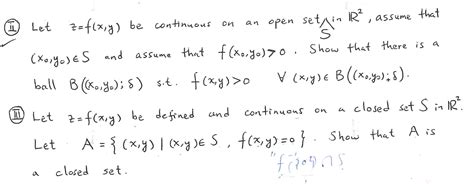 II Let z=f(x,y) be continuous on an open set S in ℝ², assume that
(x₀,y₀)∈S and assume that f(x₀,y₀)>0. Show that there is a
ball B((x₀,y₀);δ) s.t. f(x,y)>0 ∀ (x,y)∈B((x₀,y₀);δ).
III Let z=f(x,y) be defined and continuous on a closed set S in ℝ².
Let A={(x,y)|(x,y)∈S, f(x,y)=0}. Show that A is
a closed set.